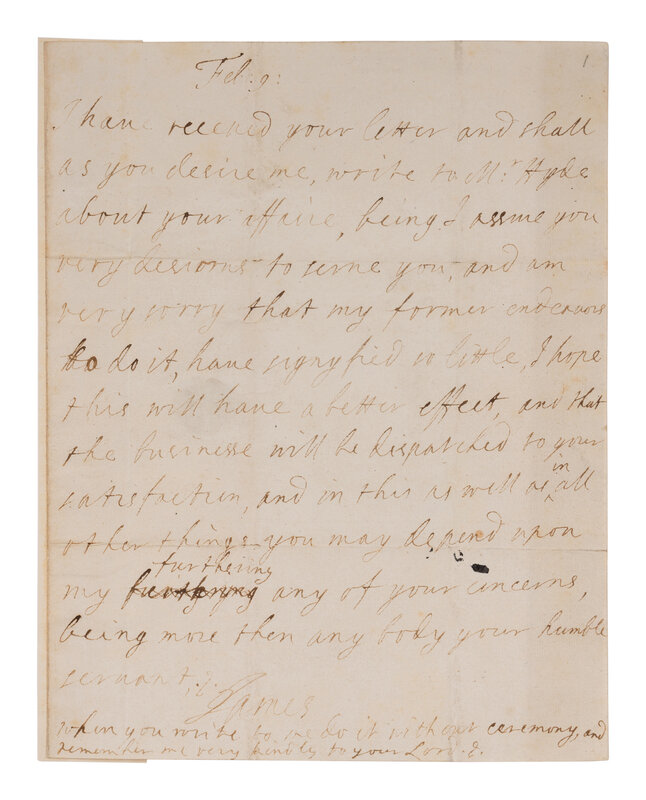 1
Feb: 9:
I have receaued your letter and shall
as you desire me, write to Mr Hyde
about your affaire, being I assure you
very desirous to serue you, and am
very sorry that my former endeauors
to do it, haue signyfied so little, I hope
this will haue a better effect, and that
the businesse will be dispatched to your
satisfaction, and in this as well as in all
other things you may depend upon
my furthering any of your concerns,
being more then any body your humble
seruant, &.
James
when you write to me do it without ceremony, and
remember me very kindly to your Lord. &.